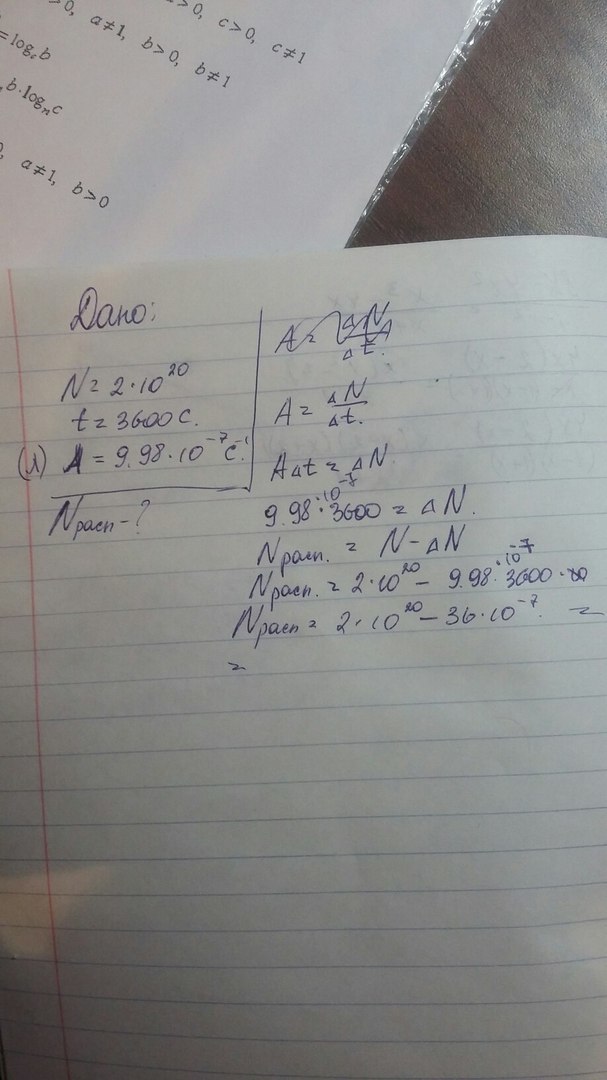 >0, a≠1, b>0, b≠1
>0, c>0, c≠1
=log b
b·log c
a≠1, b>0
Дано:
N = 2·10²⁰
t = 3600 с.
(λ) A = 9.98·10⁻⁷ с⁻¹.
Nрасп - ?
A = ΔN/Δt.
A = ΔN/Δt.
AΔt = ΔN.
9.98·10⁻⁷·3600 = ΔN.
Nрасп. = N - ΔN
Nрасп. = 2·10²⁰ - 9.98·10⁻⁷·3600·
Nрасп = 2·10²⁰ - 36·10⁻⁷. =
=